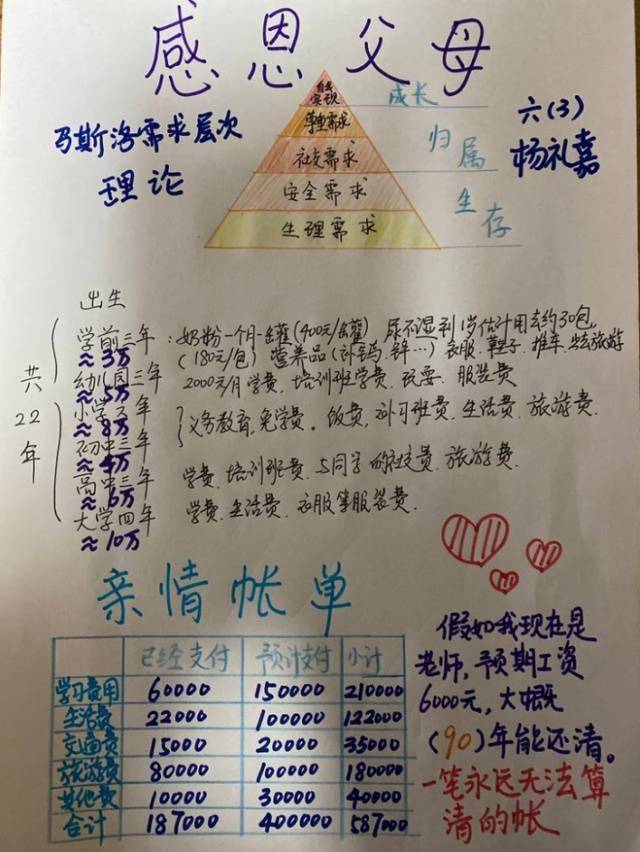 感恩父母
马斯洛需求层次
理论
自我
实现
尊重需求
社交需求
安全需求
生理需求
成长
归属
生存
六(3)
杨礼嘉
共22年
出生
学前三年：奶粉一个月一罐(400元/罐) 尿不湿到1岁估计用去约30包
≈3万 (180元/包) 营养品(补钙、锌…) 衣服、鞋子、推车、出去旅游
幼儿园三年 2000元/月学费、培训班学费、玩耍、服装费
≈5万
小学六年
≈8万 义务教育,免学费。饭费,补习班费、生活费、旅游费.
初中三年
≈4万
高中三年 学费、培训班费、与同学的社交费、旅游费.
≈6万
大学四年 学费、生活费、衣服等服装费.
≈10万
亲情帐单
已经支付 预计支付 小计
学习费用 60000 150000 210000
生活费 22000 100000 122000
交通费 15000 20000 35000
旅游费 80000 100000 180000
其他费 10000 30000 40000
合计 187000 400000 587000
假如我现在是
老师,预期工资
6000元,大概
(90)年能还清。
一笔永远无法算
清的帐